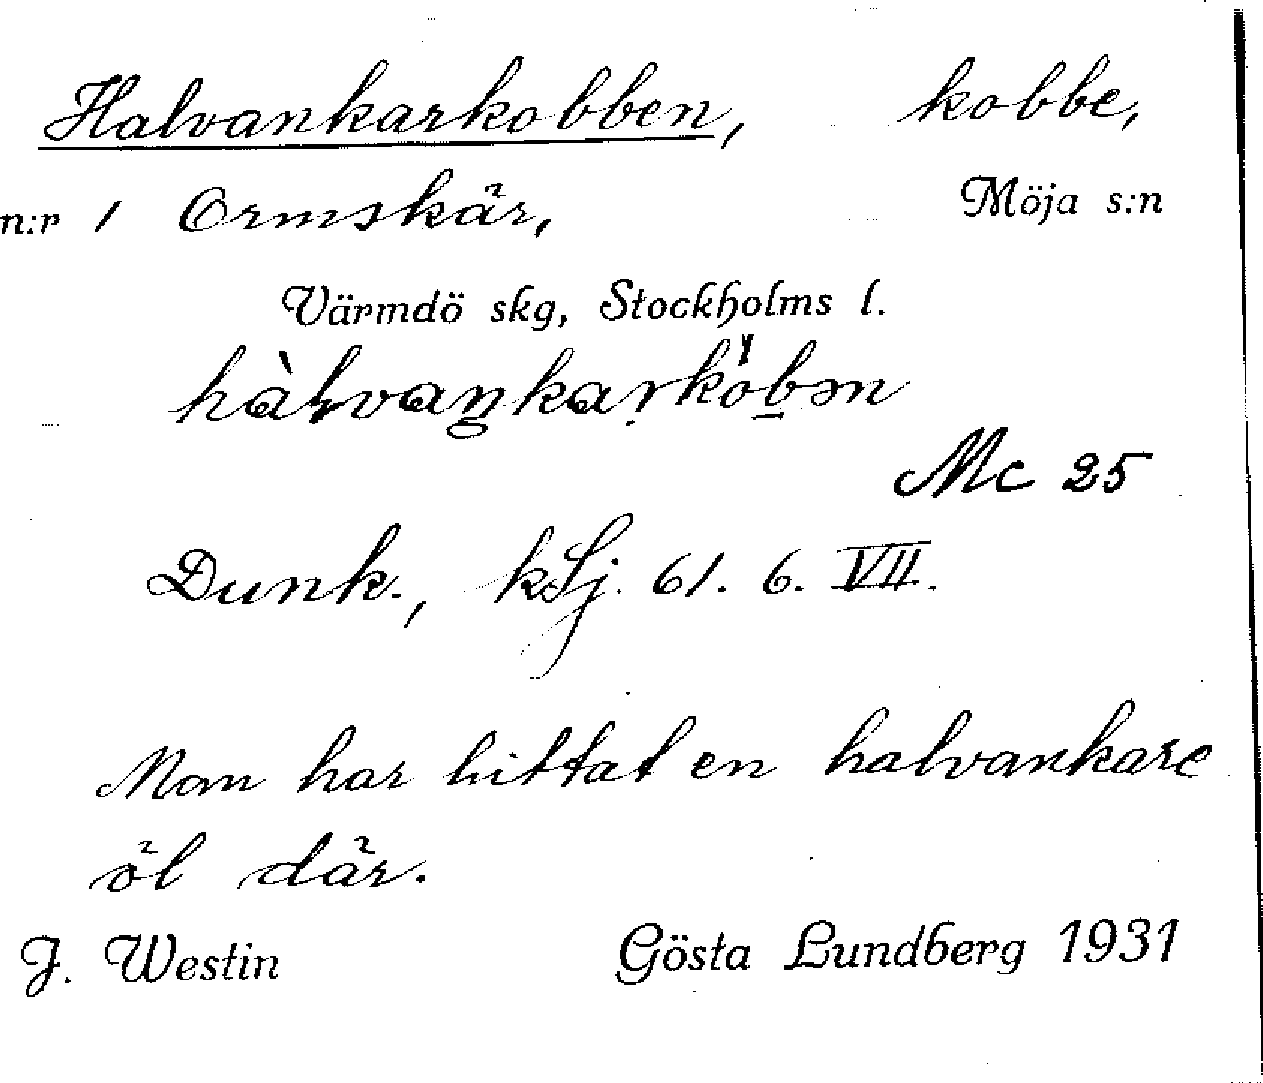 Halvankarkobben, kobbe,
n:r 1 Ormskär, Möja s:n
Värmdö skg, Stockholms l.
Mc 25
Dunk., kSj. 61. 6. VII.
Man har hittat en halvankare
öl där.
J. Westin Gösta Lundberg 1931